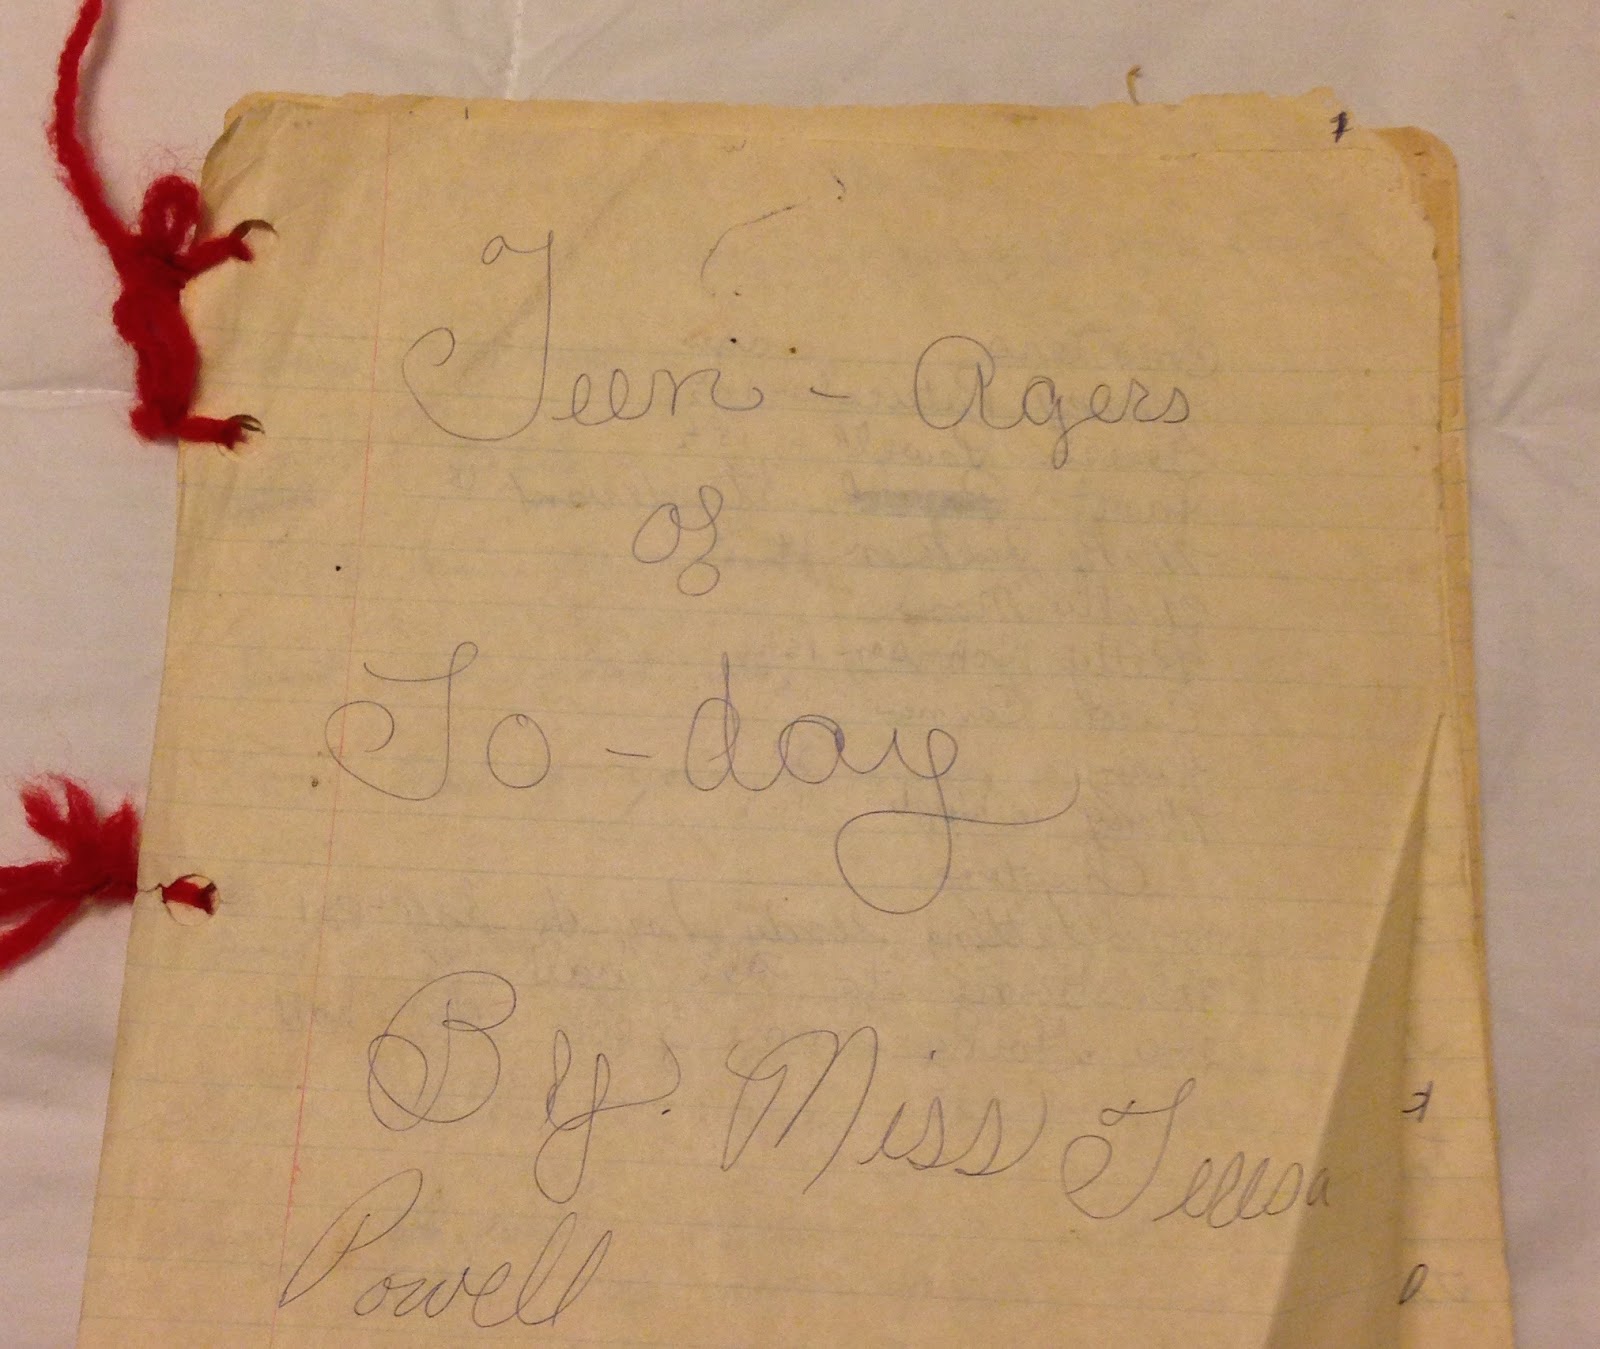 Teen - Agers
of
To - day
By. Miss Teresa
Powell